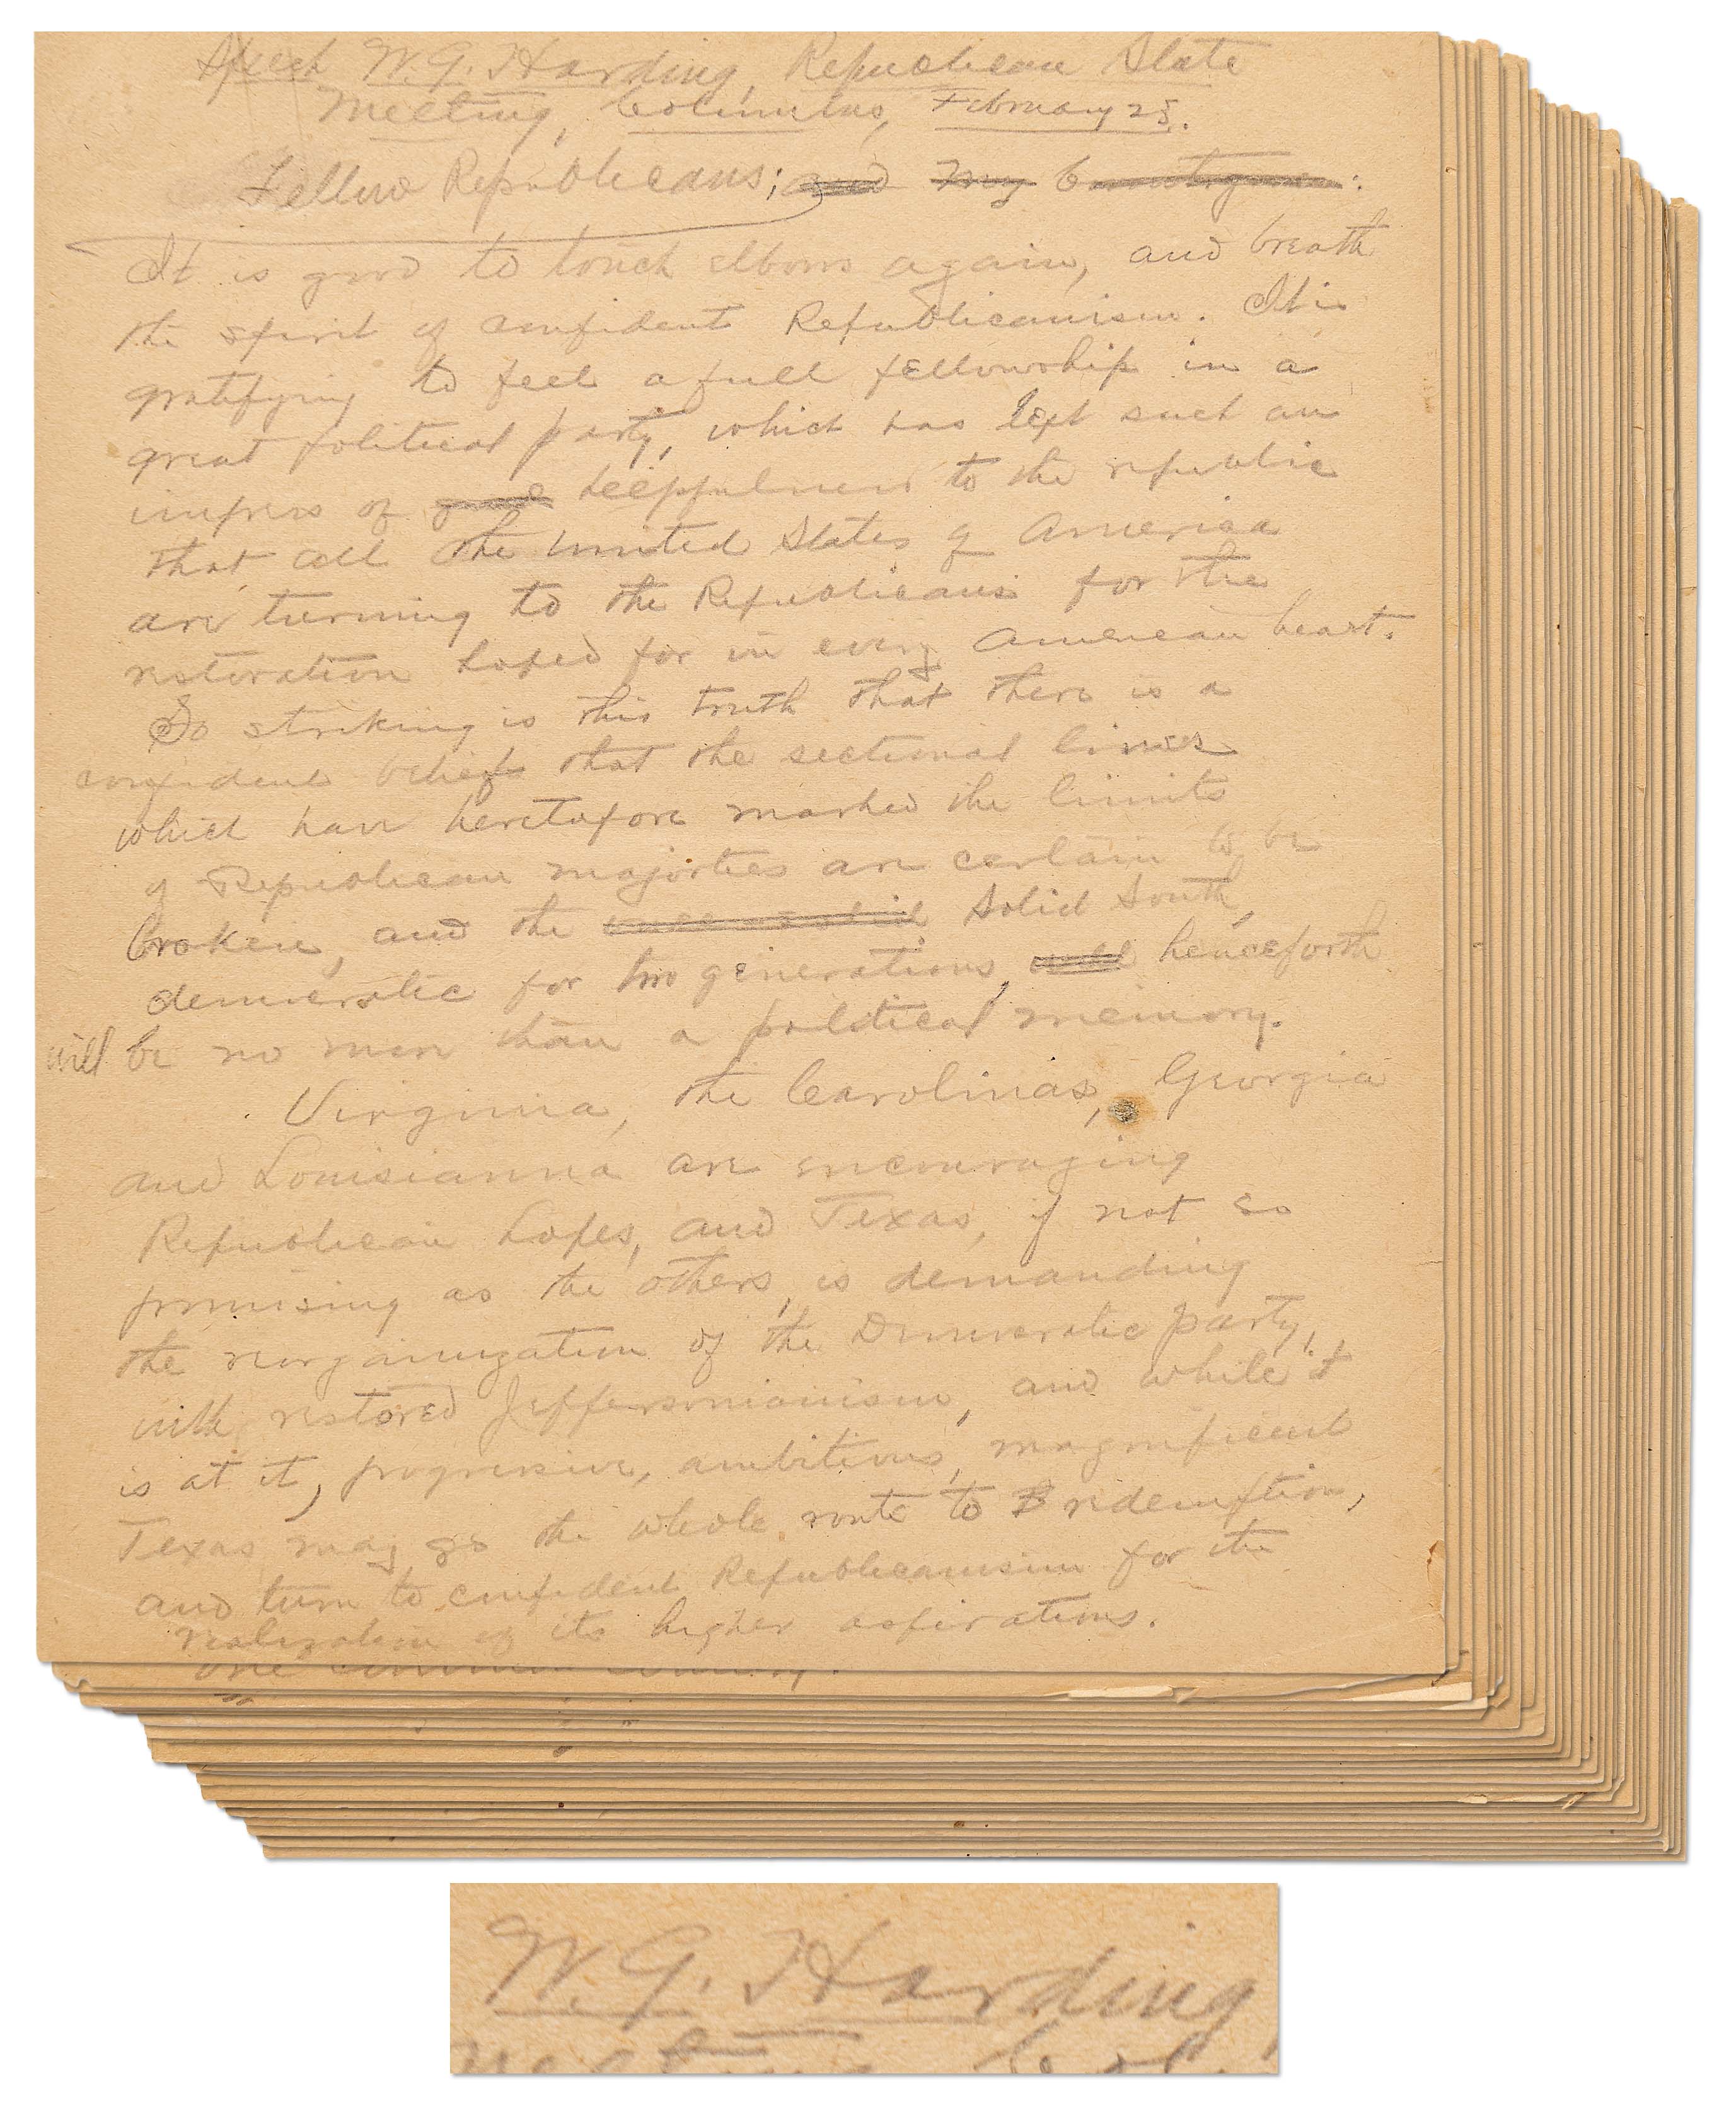 Speech W.G. Harding, Republican State
Meeting, Columbus, February 25.
Fellow Republicans; and my
It is good to touch elbows again, and breath
the spirit of confident Republicanism. It is
gratifying to feel a full fellowship in a
great political party, which has left such an
impress of helpfulness to the republic
that all the United States of America
are turning to the Republicans for the
restoration hoped for in every American heart.
So striking is this truth that there is a
confident belief that the sectional lines
which have heretofore marked the limits
of Republican majorties are certain to be
broken, and the Solid South,
democratic for two generations, will henceforth
will be no more than a political memory.
Virginia, the Carolinas, Georgia
and Louisianna are encouraging
Republican hopes, and Texas, if not so
promising as the others, is demanding
the reorganization of the Democratic party,
with restored Jeffersonianism, and while it
is at it, progressive, ambitious, magnificent
Texas may go the whole route to redemption,
and turn to confident Republicanism for the
realization of its higher aspirations.
one common country.
W.G. Harding,